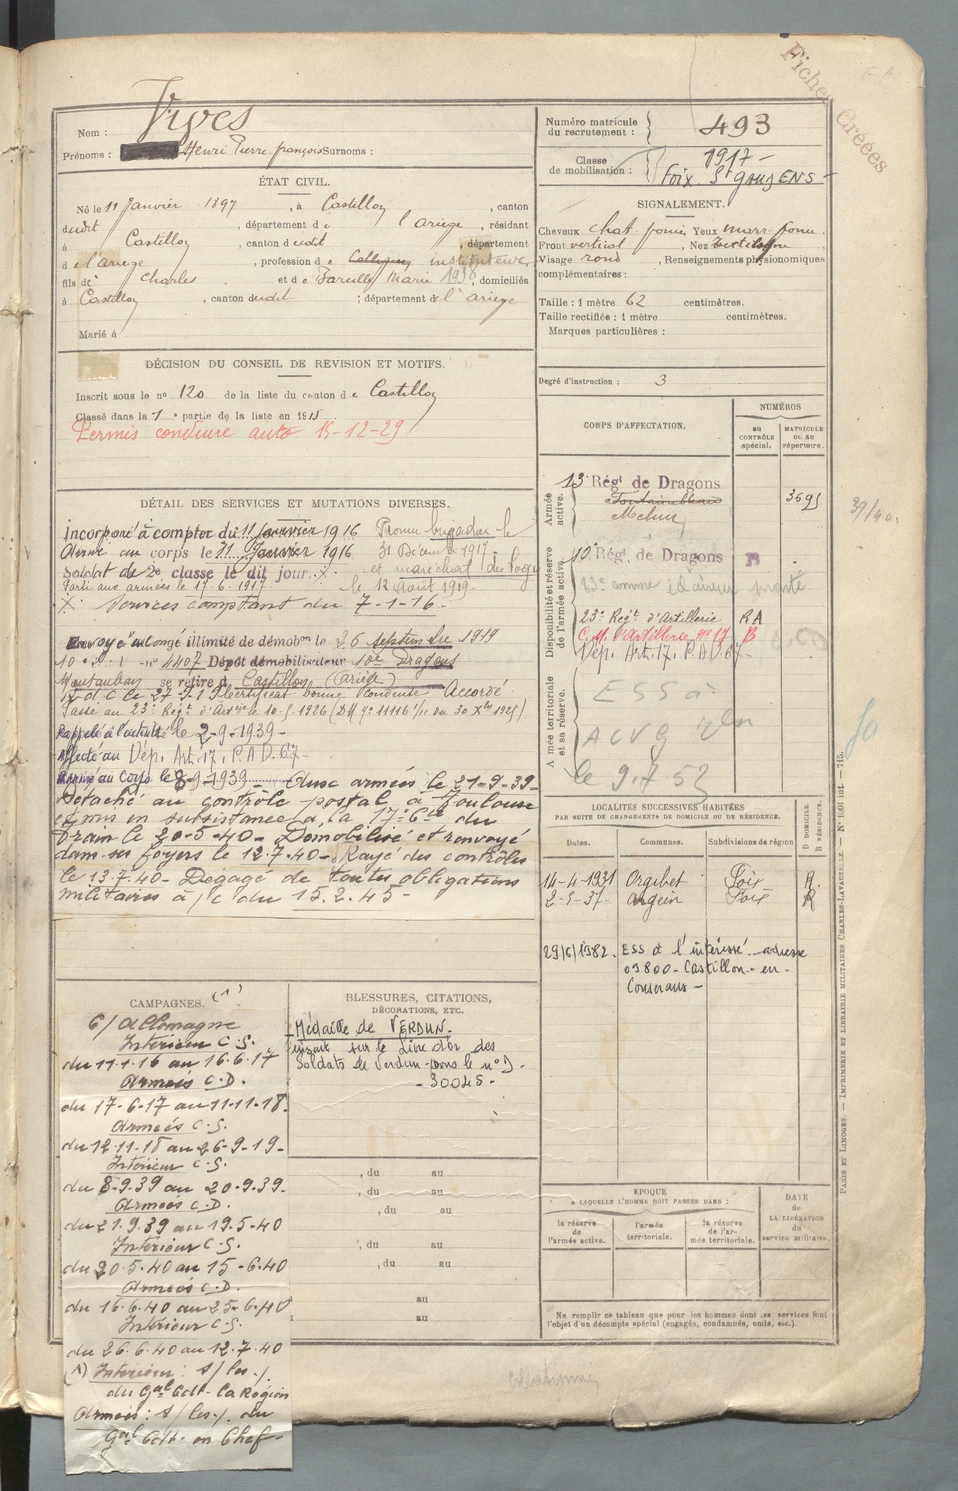 Fiches Créées
Nom : Vives
Prénoms : Henri Pierre françois Surnoms :
ÉTAT CIVIL.
Né le 11 Janvier 1897, à Castillon, canton
dudit, département de l'ariège, résidant
à Castillon, canton dudit, département
d e l'ariège, profession d e instituteur
fils de Charles et d e Marie 1938, domiciliés
à Castillon, canton dudit; département de l'ariège
Marié à
DÉCISION DU CONSEIL DE REVISION ET MOTIFS.
Inscrit sous le no 120 de la liste du canton d e Castillon
Classé dans la 1e partie de la liste en 1915.
Permis conduire auto 15-12-29
DÉTAIL DES SERVICES ET MUTATIONS DIVERSES.
Incorporé à compter du 11 Janvier 1916 Promu brigadier le
Arrivé au corps le 11 Janvier 1916 31 Décembre 1917
Soldat de 2e classe le dit jour. X et maréchal des logis
Parti aux armées le 17-6-1917 le 12 août 1919
X Services comptant du 7-1-16-
Envoyé en congé illimité de démobon le 26 septembre 1919
4407 Dépôt démobilisateur 10e Dragons
Montauban se retire à Castillon (Ariège)
Certificat bonne conduite Accordé
Passé au 23e Régt d'Artie le 10-5-1926 (DM no 11116 1/11 du 30 Xbre 1925)
Rappelé à l'activité le 2-9-1939-
Affecté au Dép. Art. 17, P.A.D. 67-
Arrivé au Corps le 8-9-1939- aux armées le 21-9-39-
Détaché au contrôle postal à Toulouse
et mis en subsistance à la 17e Cie du
Train le 20-5-40- Démobilisé et renvoyé
dans ses foyers le 12-7-40- Rayé des contrôles
le 13-7-40- Dégagé de toutes obligations
militaires à /c du 15.2.45-
CAMPAGNES. (1)
C/ Allemagne
Intérieur C.S.
du 11-1-16 au 16-6-17
Armées C.D.
du 17-6-17 au 11-11-18.
Armées C.S.
du 12-11-18 au 26-9-19-
Intérieur C.S.
du 8-9.39 au 20-9.39-
Armées C.D.
du 21.9.39 au 19.5-40
Intérieur C.S.
du 20-5.40 au 15-6.40
Armées C.D.
du 16.6.40 au 25-6.40
Intérieur C.S.
du 26.6.40 au 12.7.40
(1) Intérieur : s/ les
du Gal Cdt la Région
Armées : s/ les du
Gal Cdt en Chef-
BLESSURES, CITATIONS,
DÉCORATIONS, ETC.
Médaille de VERDUN.
inscrit sur le Livre d'or des
Soldats de Verdun sous le no
- 30045 -
, du au
, du au
, du au
, du au
, du au
au
au
Numéro matricule du recrutement : 493
Classe de mobilisation : 1917-
Foix St GAUDENS-
SIGNALEMENT.
Cheveux chat. foncé Yeux marr. foncé
Front vertical, Nez rectiligne
Visage rond, Renseignements physionomiques
complémentaires :
Taille : 1 mètre 62 centimètres.
Taille rectifiée : 1 mètre centimètres.
Marques particulières :
Degré d'instruction : 3
CORPS D'AFFECTATION.
NUMÉROS
AU CONTRÔLE spécial.
MATRICULE OU AU répertoire.
Armée active.
13e Régt de Dragons
Fontainebleau 3695
Melun
Disponibilité et réserve de l'armée active.
10e Régt de Dragons
23e Régt d'Artillerie RA
C.M. d'Artillerie no 17 B
Dép. Art. 17, P.A.D. 67-
Armée territoriale et sa réserve.
ESS à
ACVG
le 9.7.52
39/40.
LOCALITÉS SUCCESSIVES HABITÉES
PAR SUITE DE CHANGEMENTS DE DOMICILE OU DE RÉSIDENCE.
Dates. Communes. Subdivisions de région D DOMICILE. R RÉSIDENCE.
14-4-1931 Orgibet Foix R.
2-5-37- Argein Foix R
29/6/1982. ESS à l'intéressé - adresse
09800 - Castillon - en -
Couserans -
EPOQUE
A LAQUELLE L'HOMME DOIT PASSER DANS :
la réserve de l'armée active.
l'armée territoriale.
la réserve de l'armée territoriale.
DATE de LA LIBÉRATION du service militaire.
Ne remplir ce tableau que pour les hommes dont les services font
l'objet d'un décompte spécial (engagés, condamnés, omis, etc.).
PARIS ET LIMOGES. — IMPRIMERIE ET LIBRAIRIE MILITAIRES CHARLES-LAVAUZELLE.